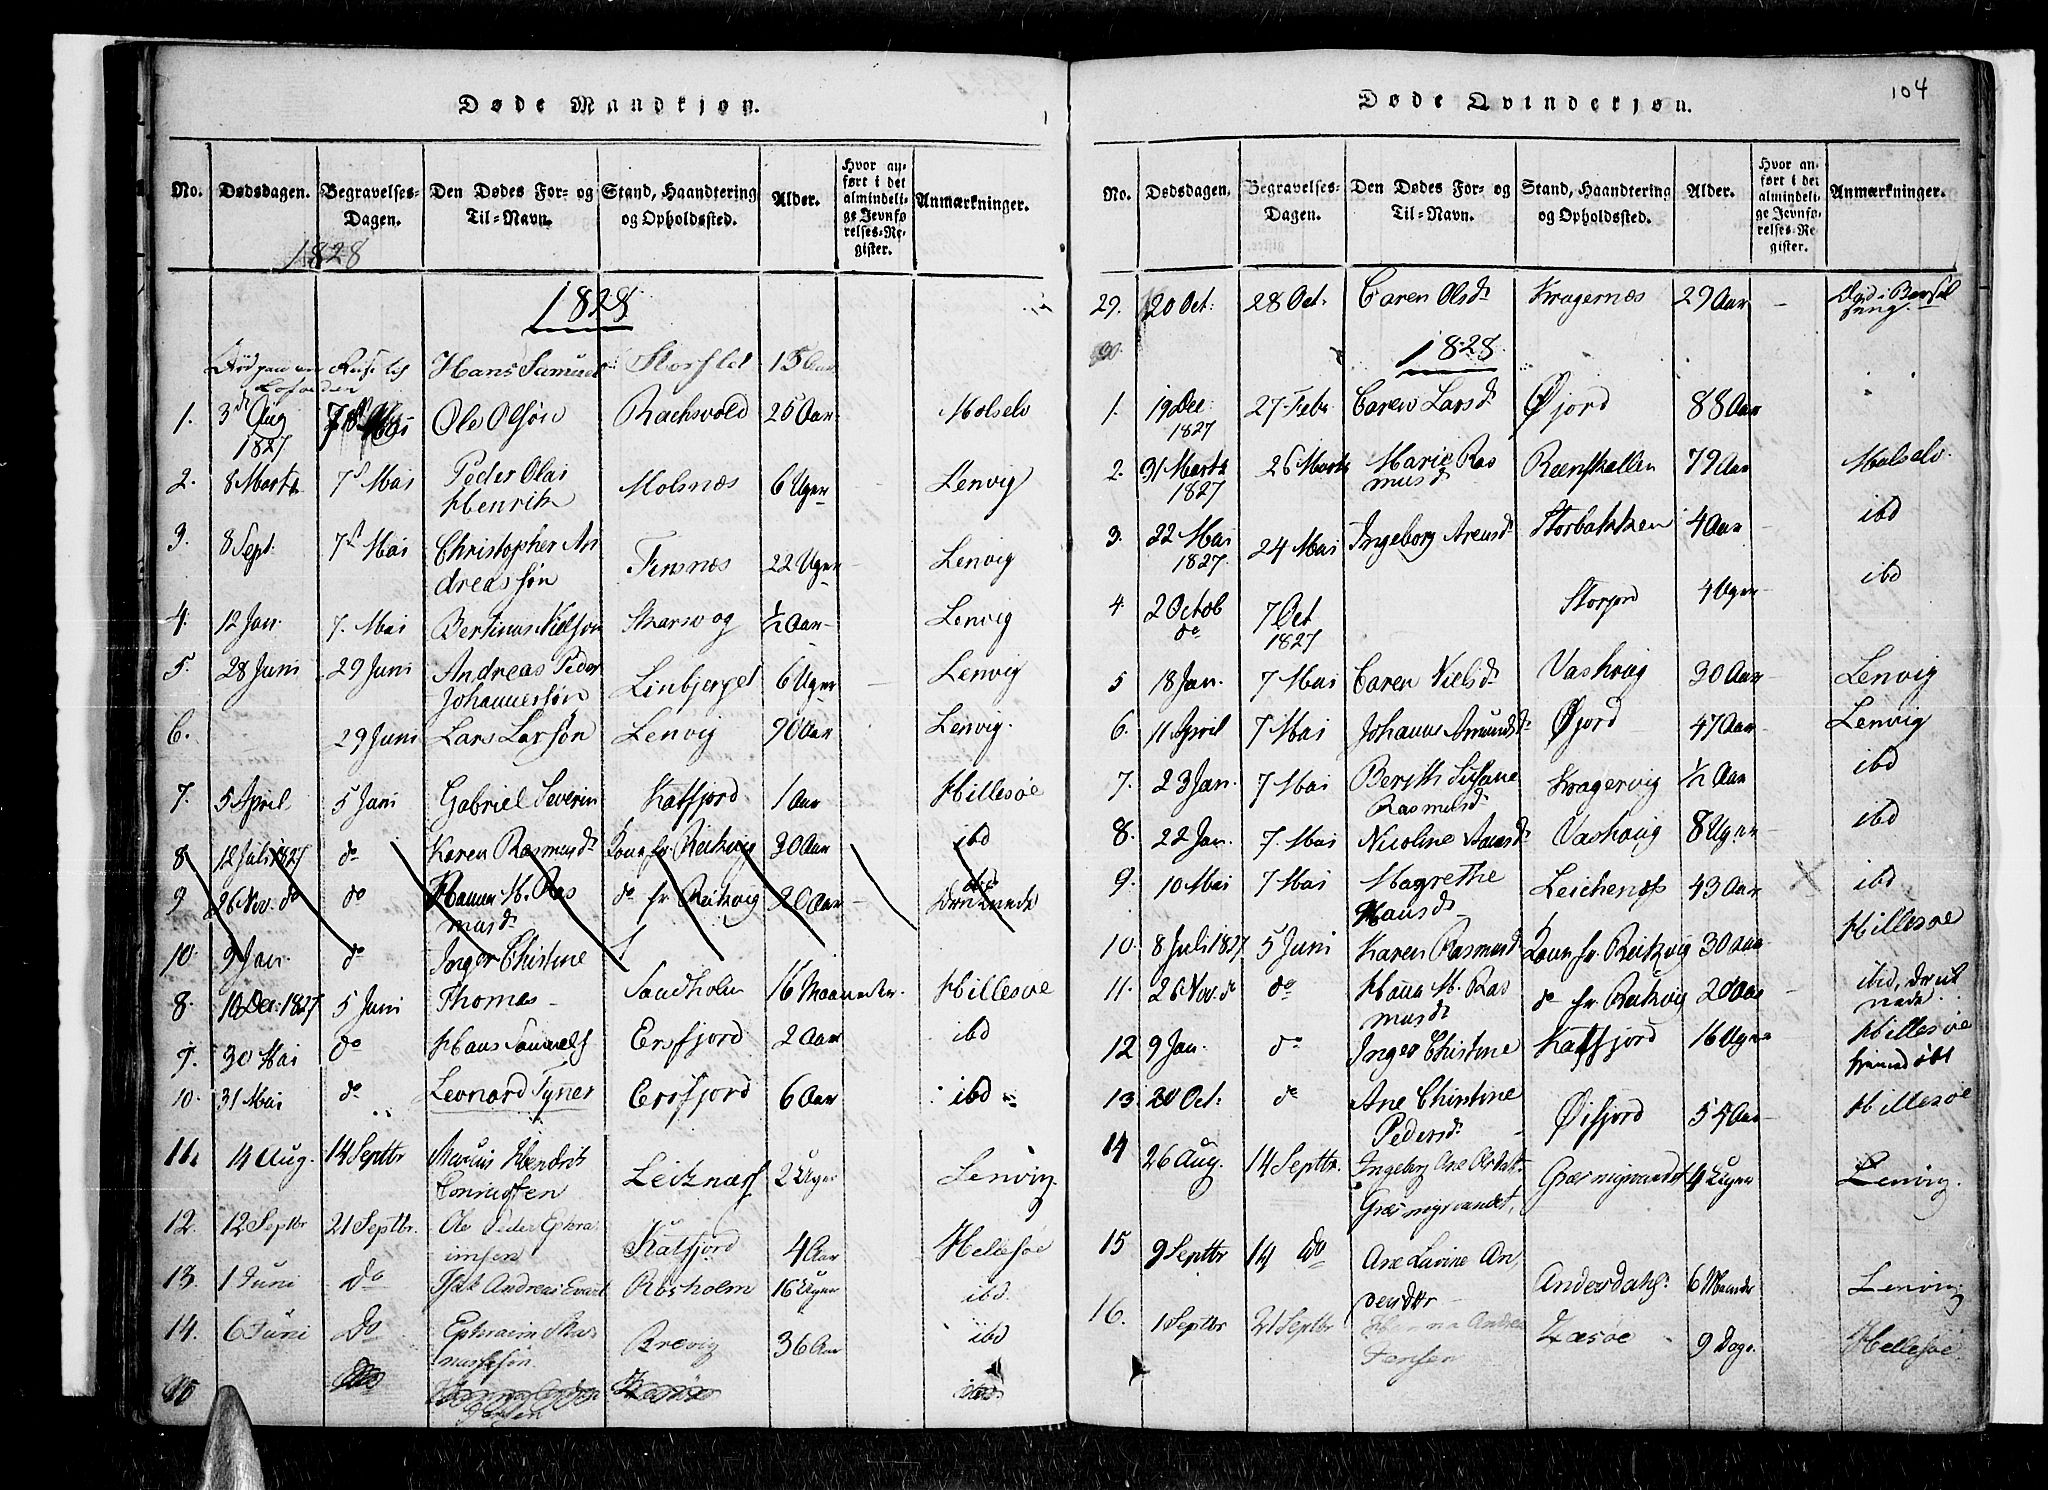 Døde Mandkjøn.
No. Dødsdagen. Begravelses-Dagen. Den Dødes For- og Til-Navn. Stand, Haandtering og Opholdssted. Alder. Hvor anført i det almindelige Jevnførelses-Register. Anmærkninger.
1828
1828
Hans Samuel 15 Aar
1. 3de Aug 1827 Mai Ole Olsøn Bachsvold 25 Aar Molselv
2. 8 Marts 7d Mai Peder Olai Henrik Molsnæs 6 Uger Lenvig
3. 8 Sept: 7d Mai Christopher Andreassøn Finsnæs 22 Uger Lenvig
4. 12 Jan. 7. Mai Bertinus Nielsøn Skarsvog ½ Aar Lenvig
5. 28 Juni 29 Juni Andreas Peder Johannessøn Linbjerget 6 Uger Lenvig
6. 29 Juni Lars Larsøn Lenvig 90 Aar Lenvig.
7. 5 April 5 Juni Gabriel Severin Katfjord 1 Aar Hillesøe
8 12 Juli 1827 do Karen Rasmusdr Kone fr Reikvig 30 Aar ibd
9 26 Nov. do do Hanna M. Rasmusdr do fr Reikvig 20 Aar ibid Druknede
10. 9 Jan. do Inger Christine
8. 10 Dec. 1827 5 Juni Thomas Sandholm 16 Maaneder. Hillesøe
9. 30 Mai do Hans Samuels Ersfjord 2 Aar ibd
10. 31 Mai do Leonard Tyner Ersfjord 6 Aar ibd
11. 14 Aug. 14 Septbr Marius Hendrik Leiknæss 2 Uger Lenvig.
12. 12 Septbr 21 Septbr. Ole Peder Ephraimsen Katfjord 4 Aar Hellesøe
13. 1 Juni Do Isak Andreas Risholm 16 Uger ibd.
14. 6 Juni Do Ephraim Brevig 36 Aar ibd
Døde Qvindekjøn.
104
No. Dødsdagen. Begravelses-Dagen. Den Dødes For- og Til-Navn. Stand, Haandtering og Opholdssted. Alder. Hvor anført i det almindelige Jevnførelses-Register. Anmærkninger.
29. 20 Oct: 28 Oct. Caren Olsdr Kragernæs 29 Aar Død i Barselseng.
30.
1828.
1. 19 Dec: 1827 27 Febr. Caren Larsdr Øjord 88 Aar
2. 31 Marts 1827 26 Marts Marie Rasmusdr Reenskallen 79 Aar Molselv.
3. 22 Mai 1827. 24 Mai Ingeborg Arensdr Storbakken 4 Aar ibd
4. 2 Octob do 7 Oct 1827 Storjord 4 Uger ibd
5 18 Jan. 7 Mai Caren Nielsdr Vashaug 30 Aar Lenvig
6. 11 April 7 Mai Johanne Amundsdr Øjord 47 Aar Lenvig
7. 23 Jan. 7 Mai Berith Susane Rasmusdr Kragervig ½ Aar ibd
8. 22 Jan. 7. Mai Nicoline Vashaug 8 Uger ibd
9. 10 Mai 7 Mai Magrethe Hansdr Leichenæs 43 Aar ibd
10. 8 Juli 1827 5 Juni Karen Rasmusdr Kone fr. Reikvig 30 Aar Hillesøe
11. 26 Nov. do do Hanna M. Rasmusdr do fr. Reikvig 20 Aar ibid, druknede.
12 9 Jan. do Inger Christine Katfjord 16 Uger Hillesøe hjemmedøbt
13. 20 Oct. do Ane Christine Pedersdr Øifjord 55 Aar Hillesøe
14 26 Aug. 14 Septbr. Ingeborg Ane Olsdatr Græsmyrvandet, Græsmyrvandet 4 Uger Lenvig.
15 9 Septbr 14 Do Ane Lavine Andersdtr Andersdahl 6 Maander Lenvig
16. 1 Septbr 21 Septbr Hanna Andrea Jensen 9 Dage. Hellesøe